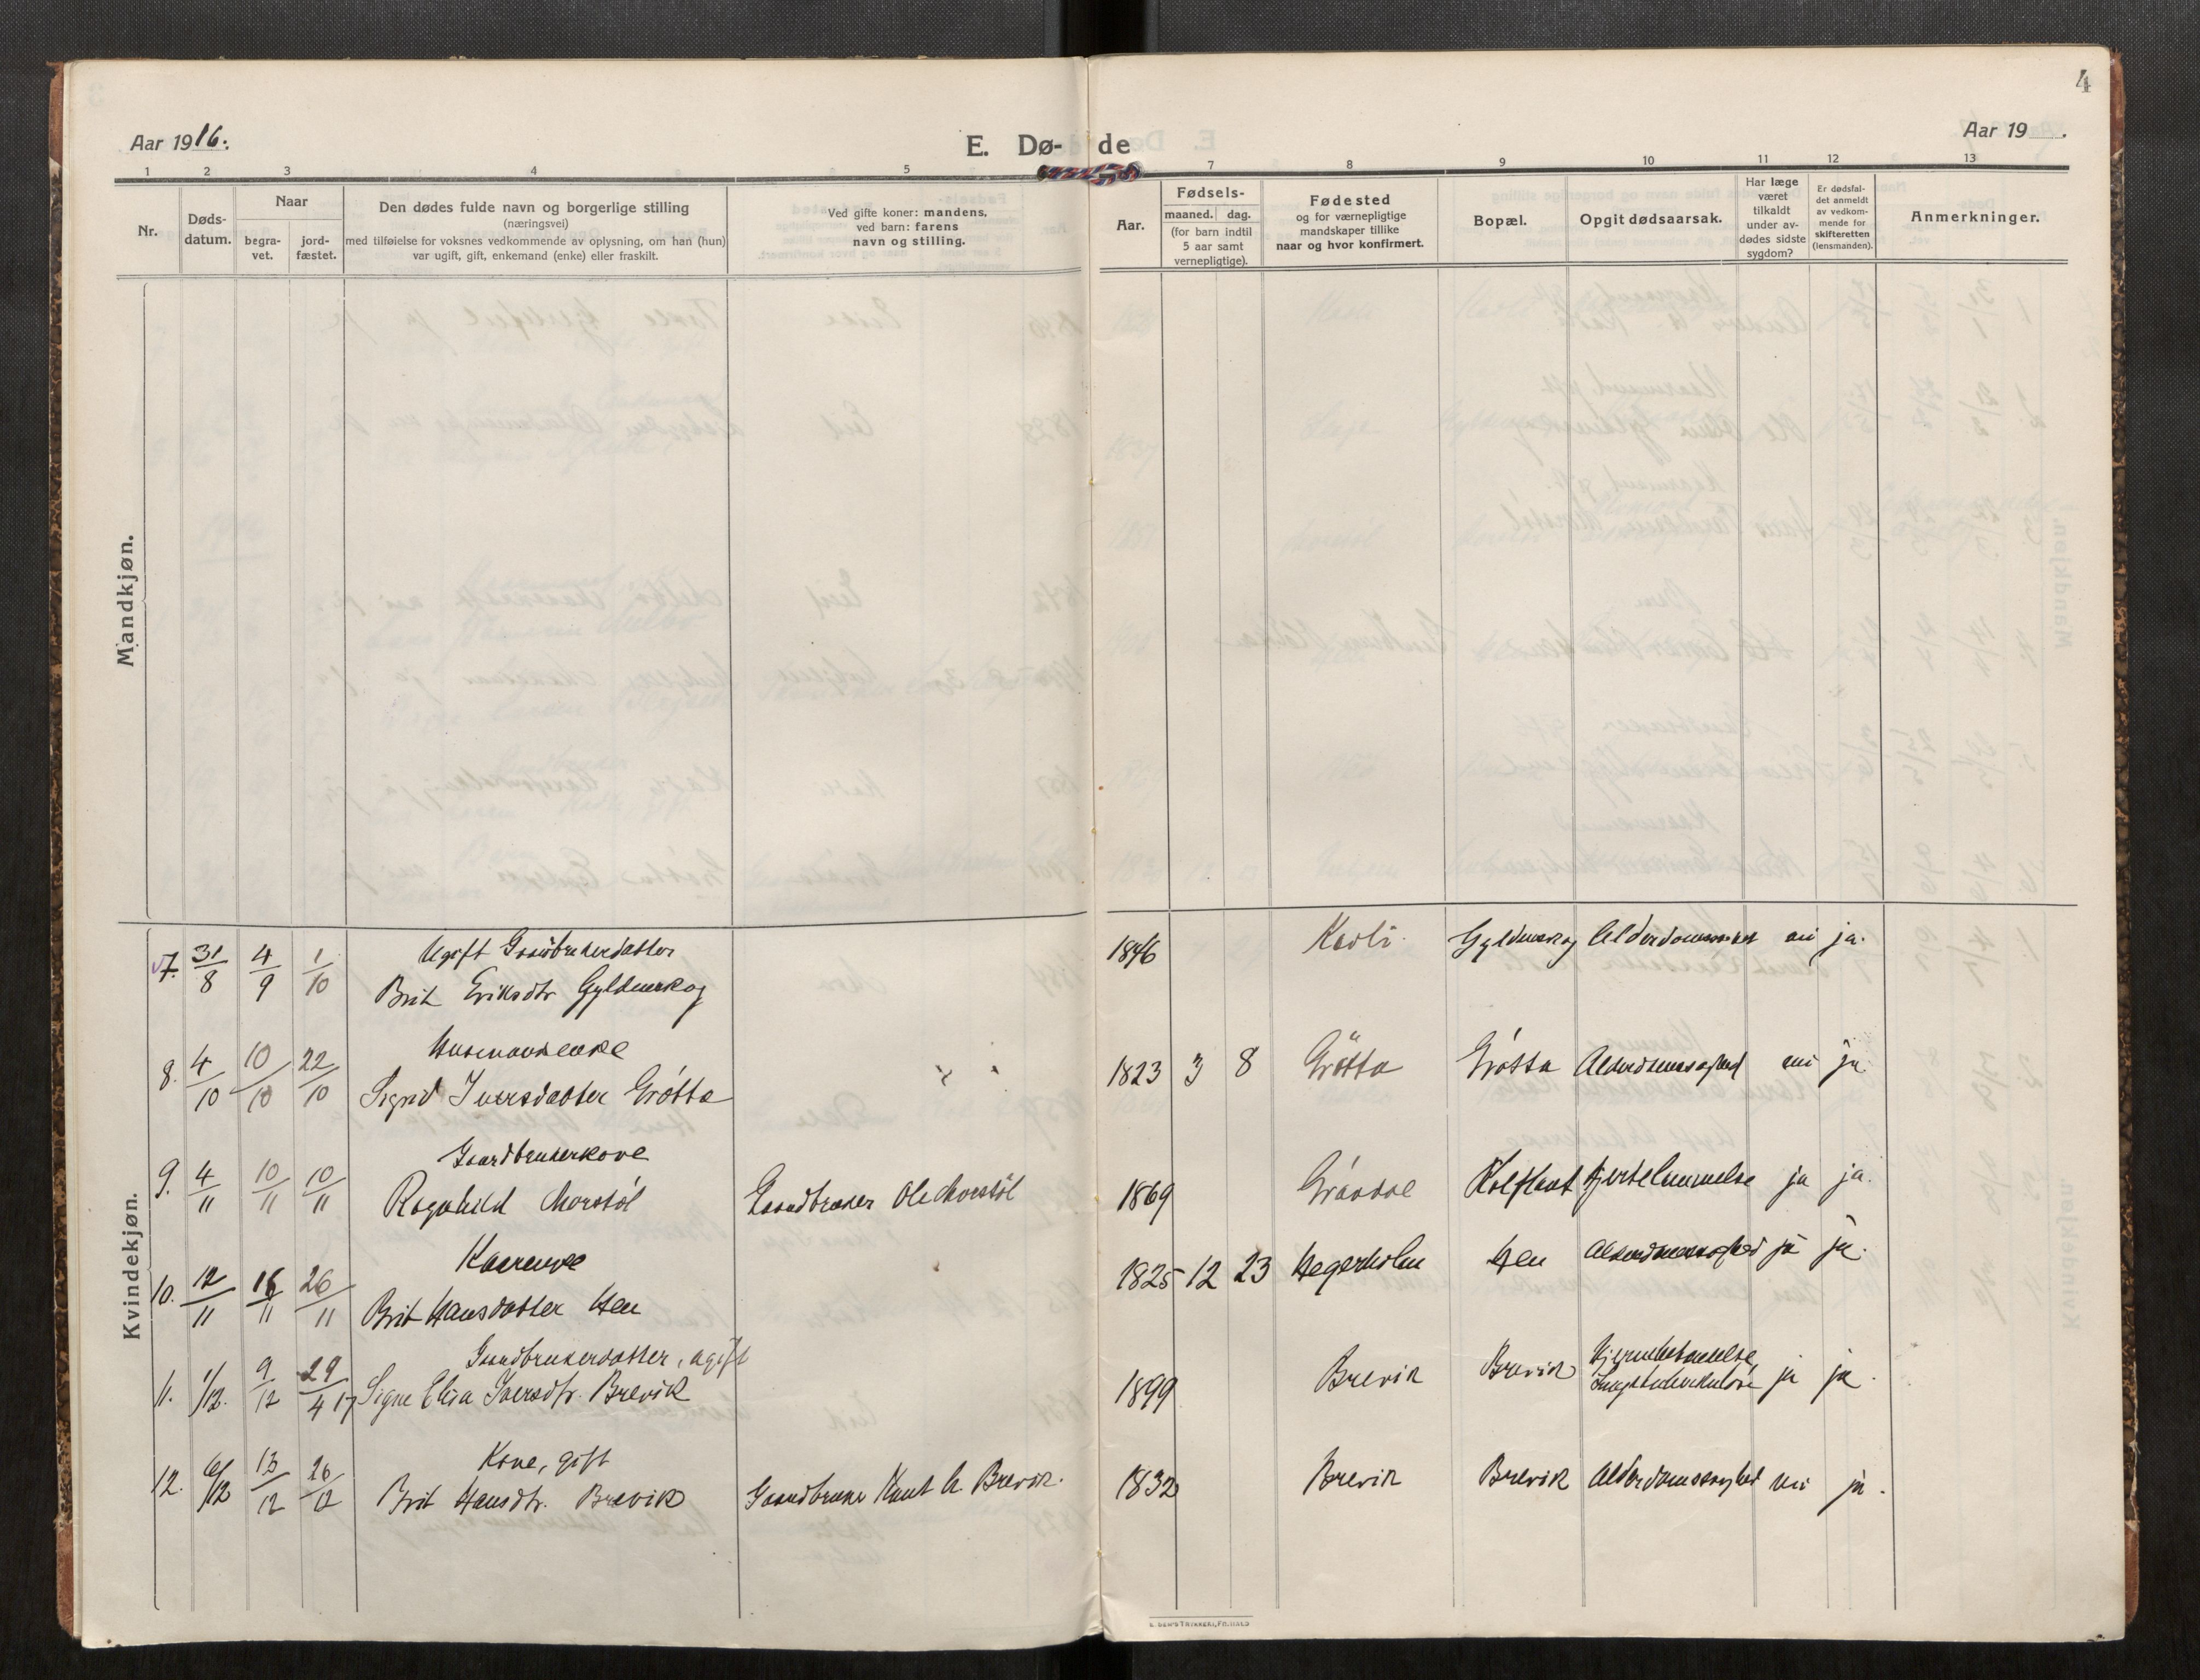 4
Aar 1916.
E. Dø- de
Aar 19 .
1 2 3 4 5 7 8 9 10 11 12 13
Nr.
Døds-
datum.
Naar
begra-
vet.
jord-
fæstet.
Den dødes fulde navn og borgerlige stilling
(næringsvei)
med tilføielse for voksnes vedkommende av oplysning, om han (hun)
var ugift, gift, enkemand (enke) eller fraskilt.
Ved gifte koner: mandens,
ved barn: farens
navn og stilling.
Aar.
Fødsels-
maaned. dag.
(for barn indtil
5 aar samt
vernepligtige).
Fødested
og for værnepligtige
mandskaper tillike
naar og hvor konfirmert.
Bopæl.
Opgit dødsaarsak.
Har læge
været
tilkaldt
under av-
dødes sidste
sygdom?
Er dødsfal-
det anmeldt
av vedkom-
mende for
skifteretten
(lensmanden).
Anmerkninger.
Mandkjøn.
Kvindekjøn.
Ugift Gaardbrukerdatter
7. 31/8 4/9 1/10 Brit Eriksdtr Gyldenskog 1846 Kavli Gyldenskog ja.
Husmandsenke
8. 4/10 10/10 22/10 Sigrid Iversdatter Grötta 1823 3 8 Grötta Grötta Alderdomssvaghed nei ja
Gaardbrukerkone
9. 4/11 10/11 10/11 Ragnhild Morstöl Gaardbruker Ole Morstöl 1869 Hjertelammelse ja ja.
Kaarenke
10. 12/11 16/11 26/11 Brit Hansdatter Hen 1825 12 23 Hegerholm Hen Alderdomssvaghed ja ja.
Gaardbrukerdatter, ugift
11. 1/12. 9/12 29/4 17 Signe Elisa Iversdtr. Brevik 1899 Brevik Brevik Hjernebetændelse, Lungetuberkulose ja ja.
Kone, gift
12. 6/12 13/12 26/12 Brit Hansdtr. Brevik Gaardbruker Knut A. Brevik. 1832 Brevik Brevik Alderdomssvaghed nei ja.